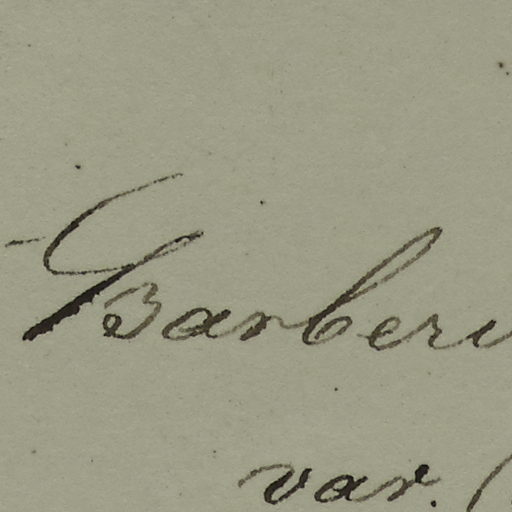 Barberi
var. (